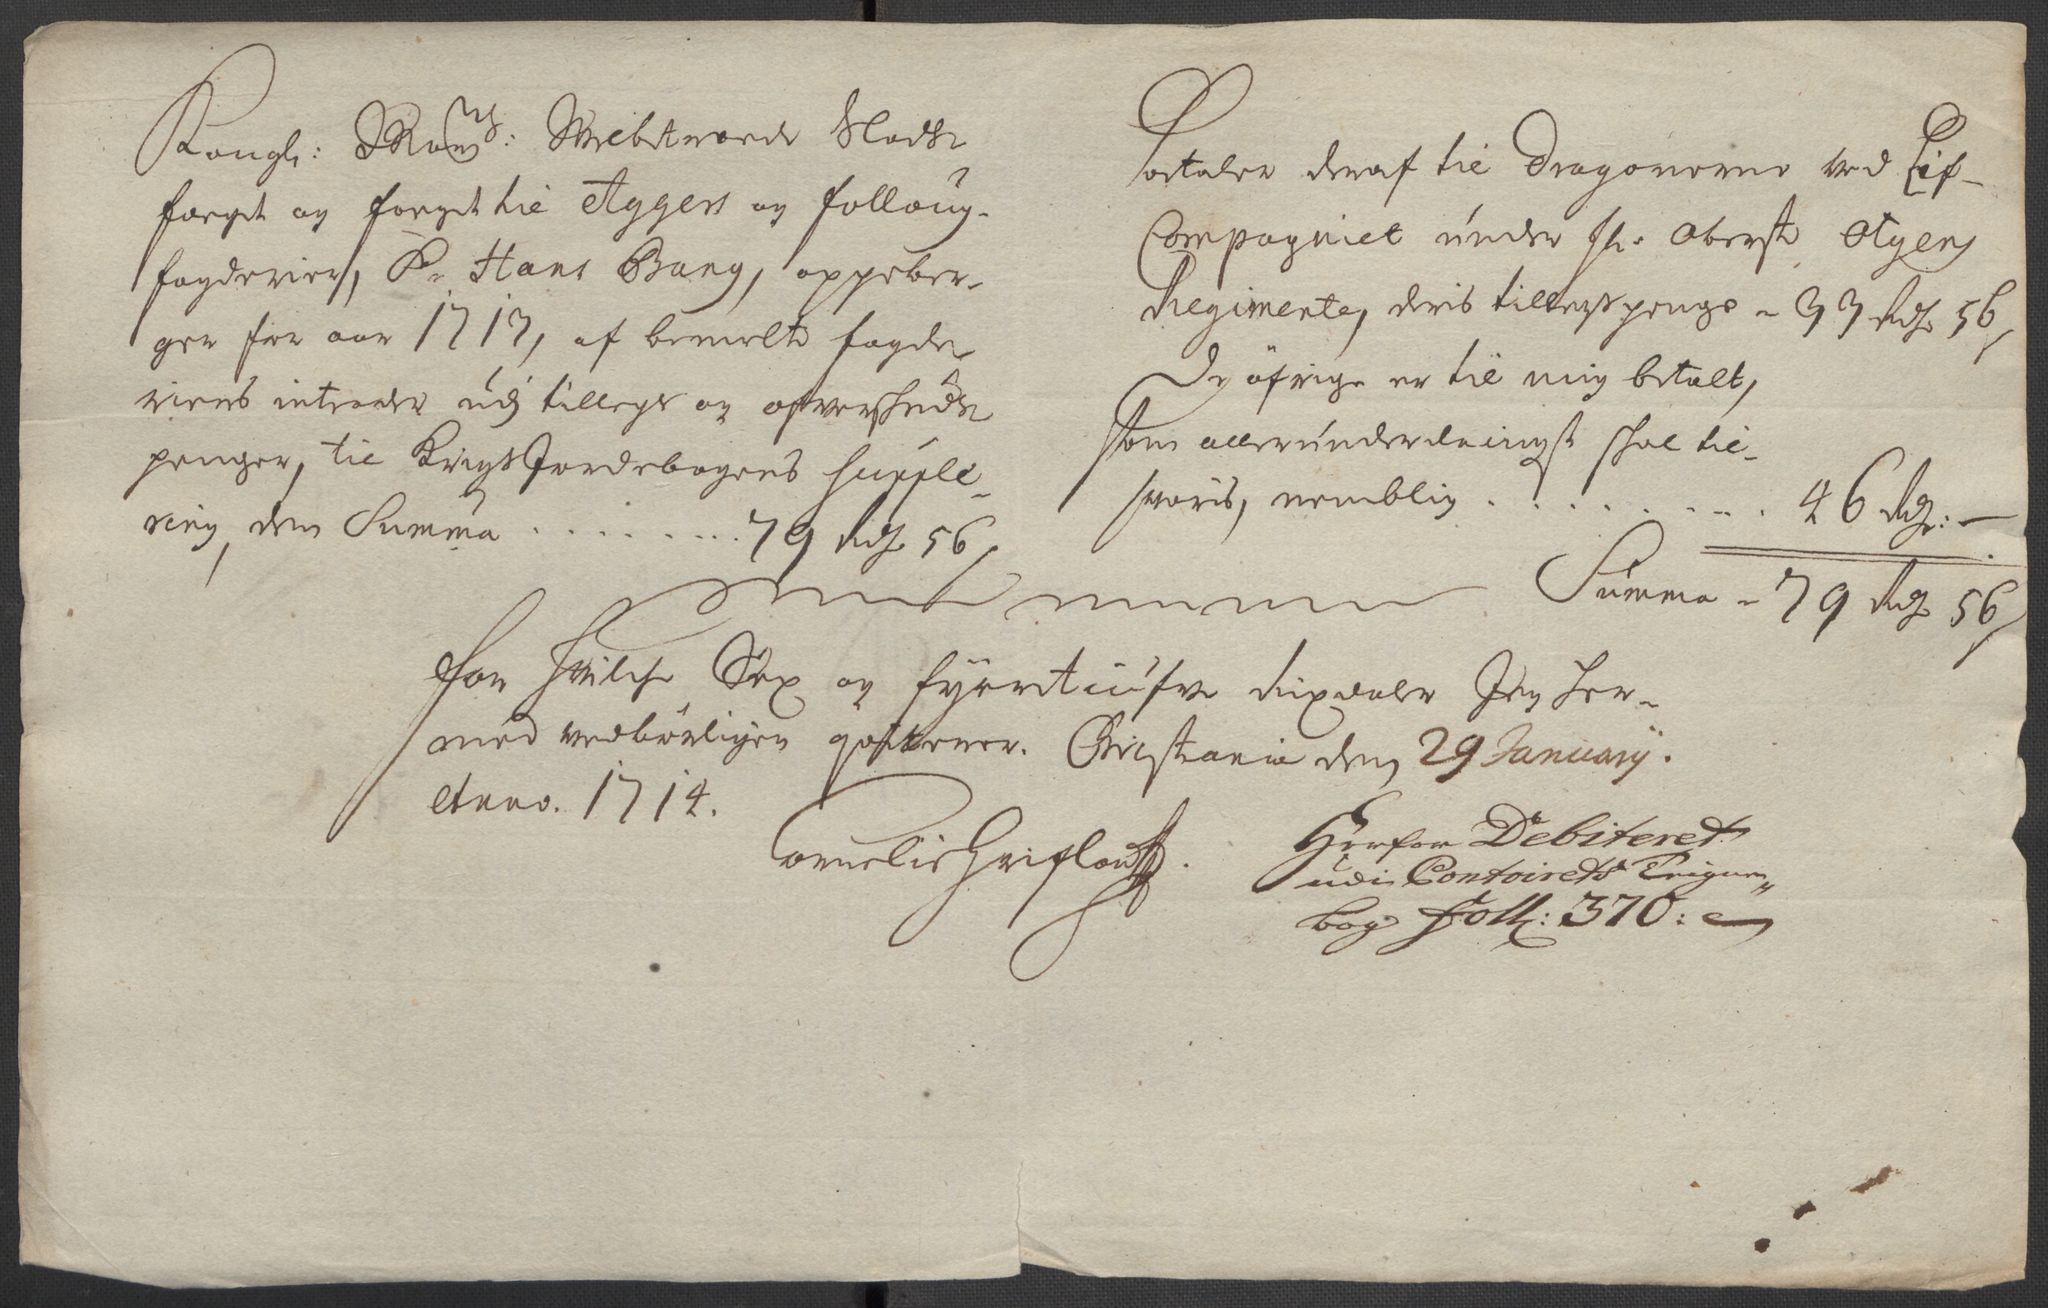 Kongl: May:ts: Welbetroede Slods
foegt og foegt til Aggers og Folloug-
fogderier, Sr. Hans Bang, oppeber-
ger for aar 1713, af bemelte fogde-
riers intrader udj tillegs og
penger, til Krigs Jordebogens supple-
ring, den Summa . . . . . . . . 79 Rdr. 56 s
Betaler deraf til Dragonerne ved Lif-
Compagniet under Hr. Oberst
Regimente, deris tillegs penge - 33 Rdr. 56 s
De öfrige er til mig betalt,
som allerunderdanigst skal til-
svaris, nemblig . . . . . . . . . 46 Rdr: —
Summa - 79 Rdr 56 s
For Hvilche Sex og fyrretiufve Rixdaler Jeg her-
med vedbørligen qvitterer. Christiania den 29 January.
Anno. 1714.
Cornelis Grifland.
Herfor Debiteret
udi Contoirets Reigne-
bog Foll: 370: